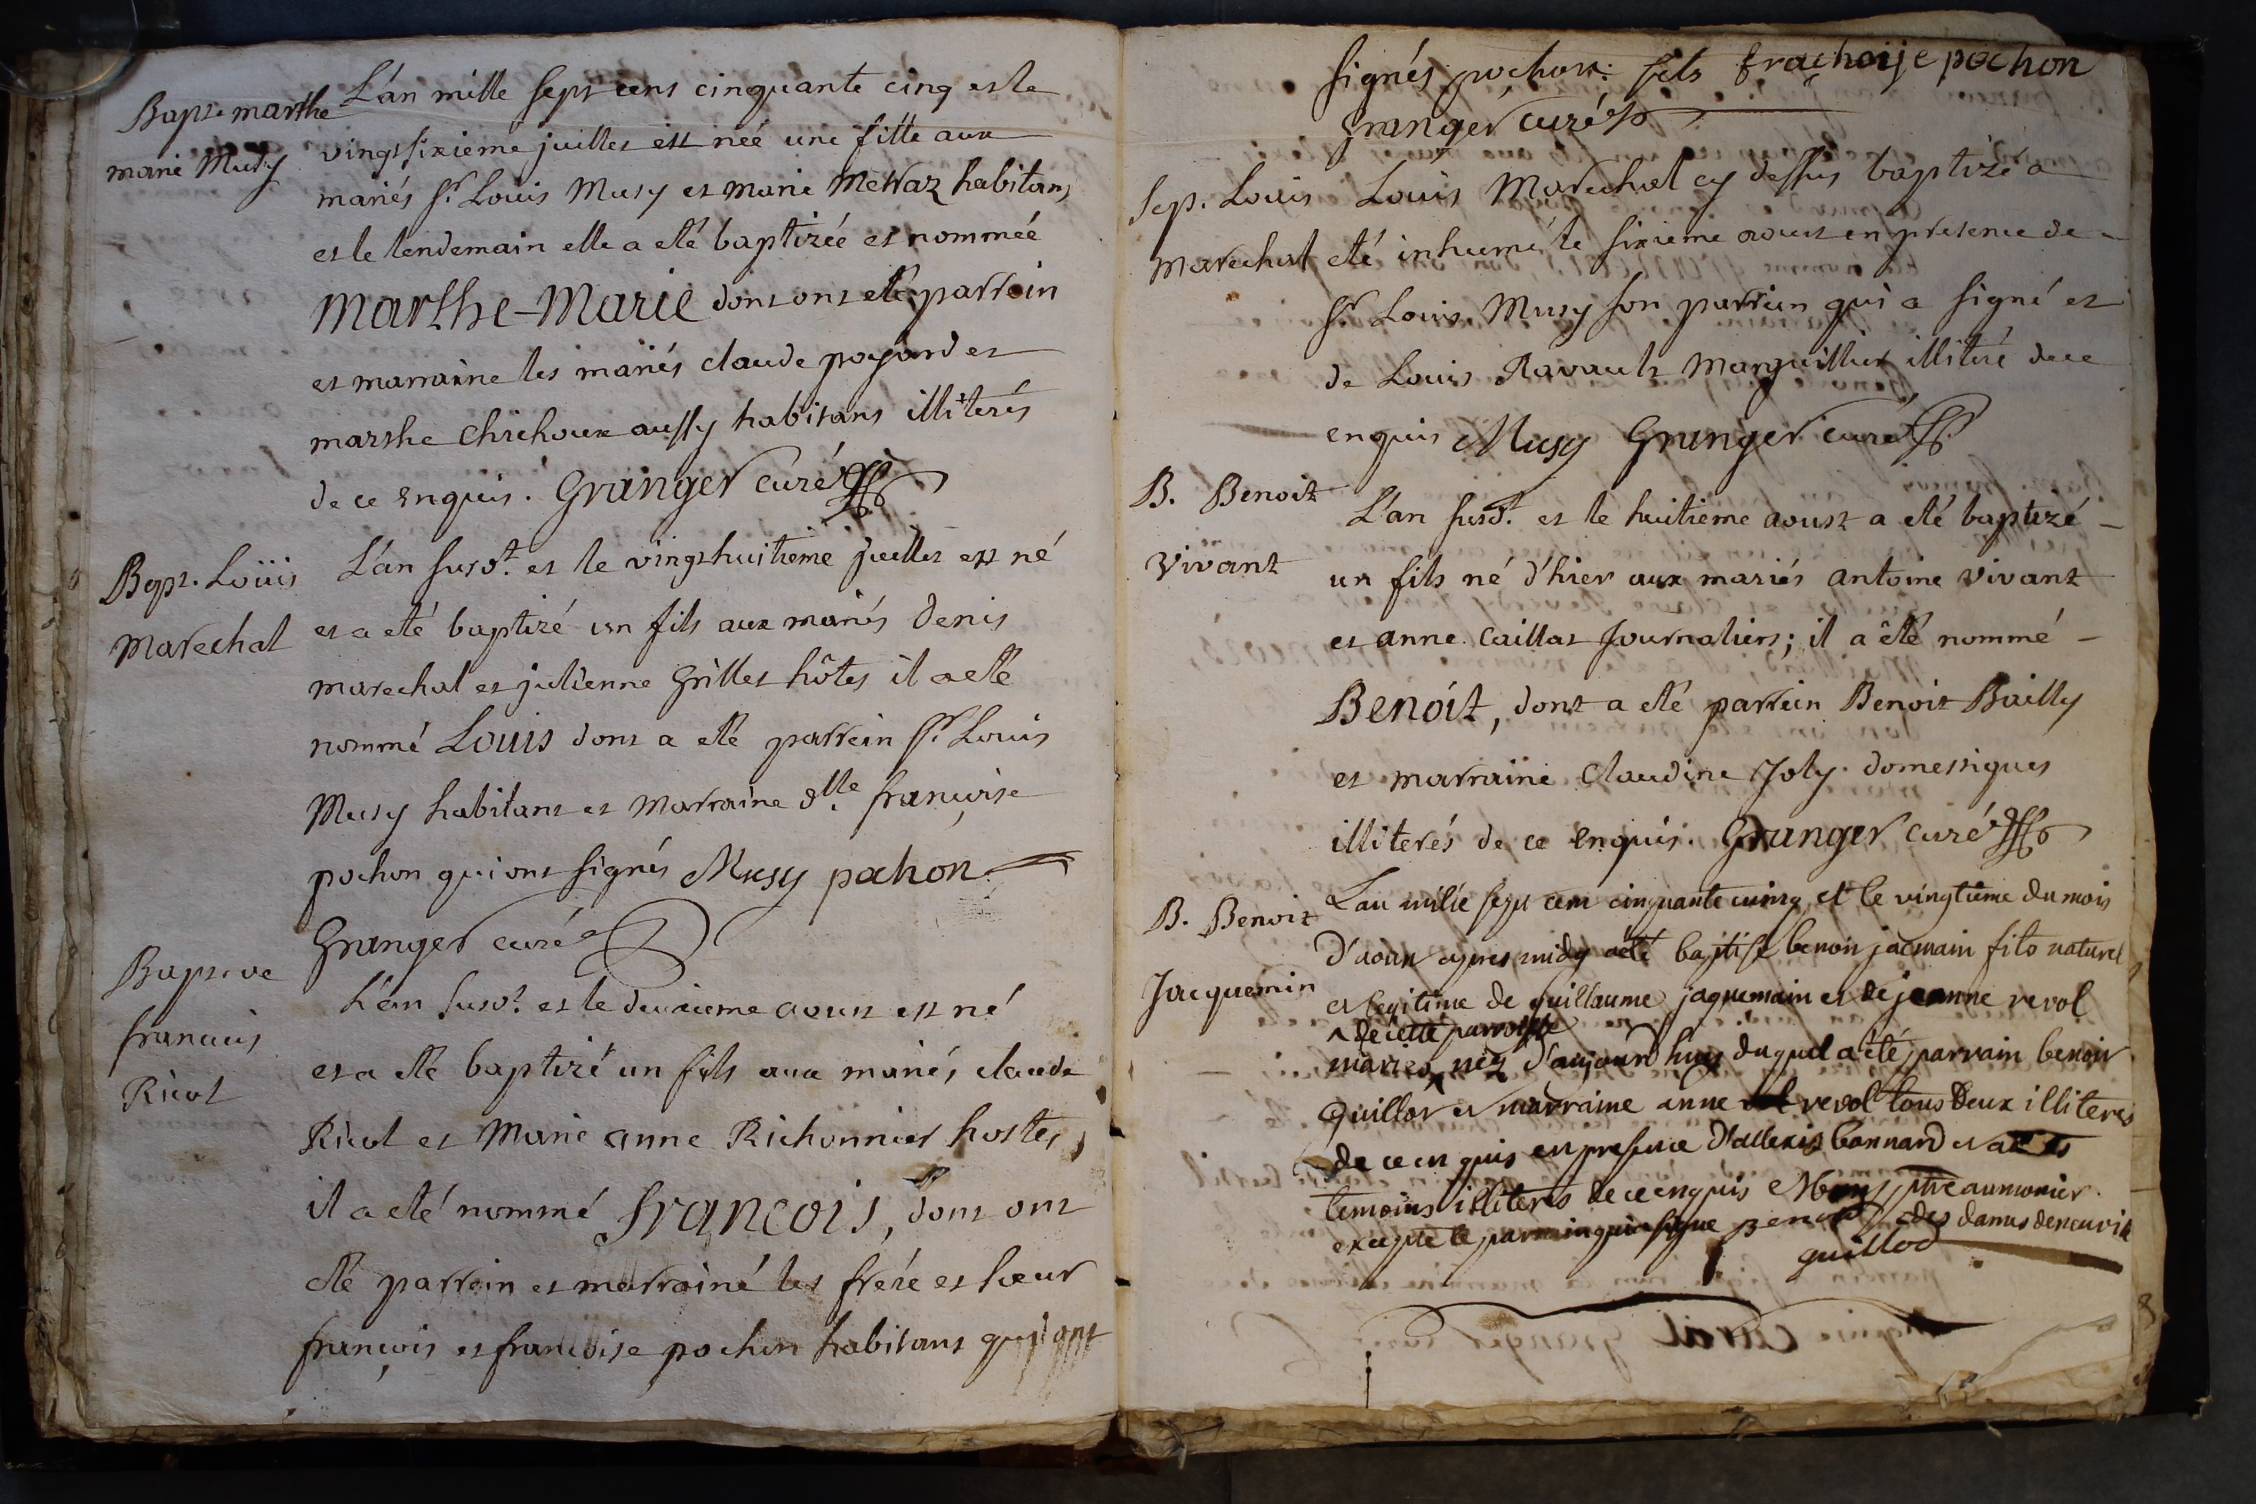 Bapt. marthe
marie Musy
L'an mille sept cens cinquante cinq et le
vingt sixieme juillet est neé une fille aux
mariés sr. Louis Musy et marie Metraz habitans
et le lendemain elle a eté baptizée et nommeé
Marthe-Marie dont ont eté parrein
et marraine les mariés claude poyard et
marthe chichoux aussy habitans illiterés
de ce enquis. Granger curé
Bapt. Loüis
Marechal
L'an susdt. et le vingt huitieme juillet est né
et a eté baptizé un fils aux mariés denis
marechal et julienne Grillet hôtes il a eté
nommé Louis dont a eté parrein sr. Louis
Musy habitant et Marraine dlle. françoise
pochon qui ont signés Musy pochon
Granger curé
Bapt. ve
francois
Ricol
L'an susdt. et le deuxieme aoust est né
et a eté baptizé un fils aux mariés claude
Ricol et Marie anne Richonnier hostes,
il a eté nommé François, dont ont
eté parrein et marrainé les frére et sœur
françois et françoise pochon habitans qui ont
signés pochon: fils frachoije pochon
Granger curé
Sep. Louis
Marechal
Louis Marechal cy dessus baptizé a
eté inhumé le sixieme aoust en presence de
sr. Louis Musy son parrein qui a signé et
de Louis Ravault Marguillier illiteré de ce
enquis Musy Granger curé
B. Benoit
Vivant
L'an susdt. et le huitieme aoust a eté baptizé
un fils né d'hier aux mariés antoine vivant
et anne Caillat Journaliers; il a êté nommé
Benoit, dont a eté parrein Benoit Bailly
et marraine Claudine Joly domestiques
illiterés de ce enquis. Granger curé
B. Benoit
Jacquemin
L'an mille sept cent cinquante cuinq et le vingtième du mois
d'aoux apres midy aété baptisé benoit jacmain fils naturel
et legitime de guillaume jaquemain et de jeanne revol
de cette parroisse
mariés néz d'aujourd'huy duquel a été parrain benoit
Quillot et marraine anne revol tous deux illiteres
de ce enquis en presence d'allexis bonnard et
temoins illiterés de ce enquis ptre aumonier
excepté le parrain qui a signé Benoit des dames de neuville
quillod